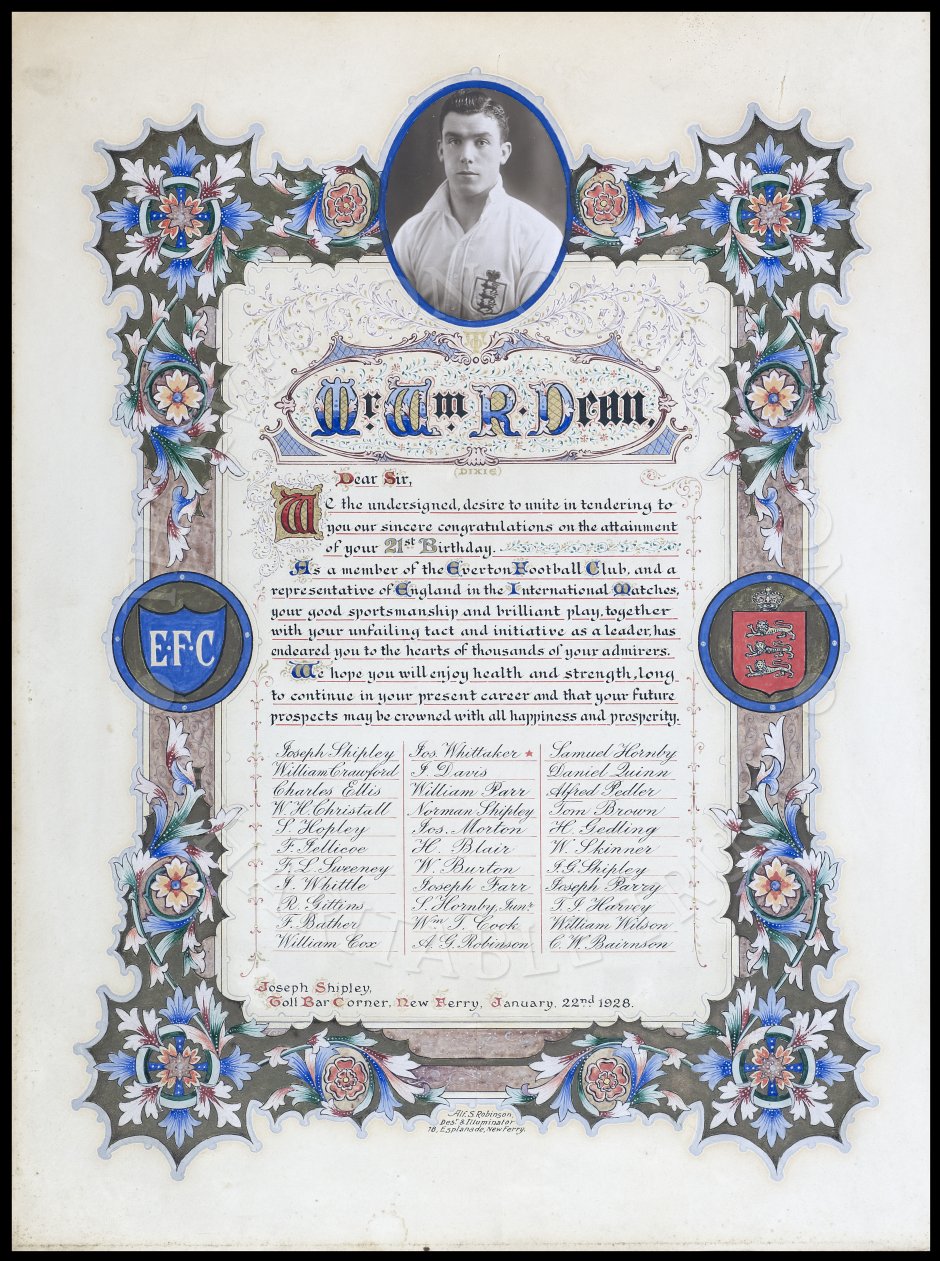 Mr. Wm R. Dean,
(DIXIE)
Dear Sir,
We the undersigned, desire to unite in tendering to
you our sincere congratulations on the attainment
of your 21st Birthday.
As a member of the Everton Football Club, and a
representative of England in the International Matches,
your good sportsmanship and brilliant play, together
with your unfailing tact and initiative as a leader, has
endeared you to the hearts of thousands of your admirers.
We hope you will enjoy health and strength, long
to continue in your present career and that your future
prospects may be crowned with all happiness and prosperity.
E.F.C
Joseph Shipley Jos. Whittaker Samuel Hornby
William Crawford J. Davis Daniel Quinn
Charles Ellis William Parr Alfred Pedler
W. H. Christall Norman Shipley Tom Brown
S. Hopley Jos. Morton H. Gedling
F. Jellicoe H. Blair W. Skinner
F. L. Sweeney W. Burton J. G. Shipley
J. Whittle Joseph Farr Joseph Parry
R. Gittins S. Hornby, Junr. T. J. Harvey
F. Bather Wm. T. Cook William Wilson
William Cox A. G. Robinson C. W. Bairnson
Joseph Shipley,
Toll Bar Corner, New Ferry, January, 22nd 1928.
Alf. S. Robinson,
Desr. & Illuminator
78, Esplanade, New Ferry.